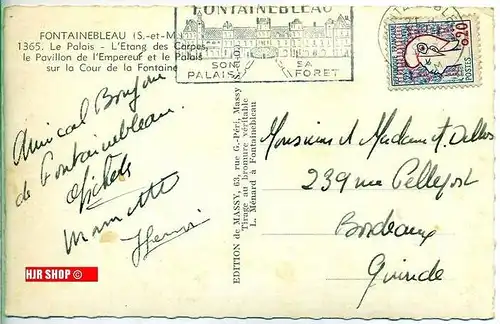 FONTAINEBLEAU (S.-et-M.)
1365. Le Palais - L'Etang des Carpes,
le Pavillon de l'Empereur et le Palais
sur la Cour de la Fontaine
FONTAINEBLEAU
SON
PALAIS
SA
FORET
0,20
POSTES
Amical Bonjour
de Fontainebleau.
Michel
Mamette
Henri
EDITION de MASSY, 63, rue G.-Péri, Massy
Tirage au bromure véritable
L. Ménard à Fontainebleau
Monsieur et Madame
239 rue Pellefort
Bordeaux
Gironde
HJR SHOP ©